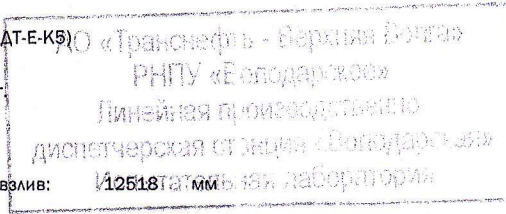 ДТ-Е-К5)
АО «Транснефть - Верхняя Волга»
РНПУ «Володарское»
Линейная производственно
диспетчерская станция «Володарская»
взлив: 12518 мм
Испытательная лаборатория